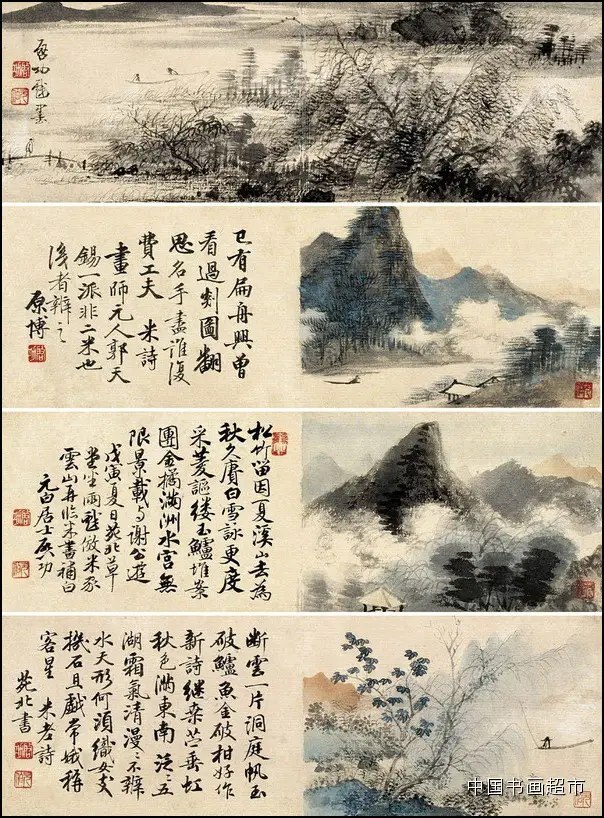 啟功戲墨
已有扁舟興曾
看過剡圖翻
思名手畫誰復
費工夫 米詩
畫師元人郭天
錫一派非二米也
後者辨之
原博
松竹留因夏溪山去為
秋久賡白雪詠更度
采菱謳縷玉鱸堆案
團金橘滿洲水宮無
限景載與謝公遊
戊寅夏日苑北草
堂坐雨戲效米家
雲山再臨米書補白
元白居士啟功
斷雲一片洞庭帆玉
破鱸魚金破柑好作
新詩繼桑苎垂虹
秋色滿東南泛泛五
湖霜氣清漫漫不辨
水天形何須織女支
機石且戲常娥稱
客星 米老詩
苑北書
中国书画超市